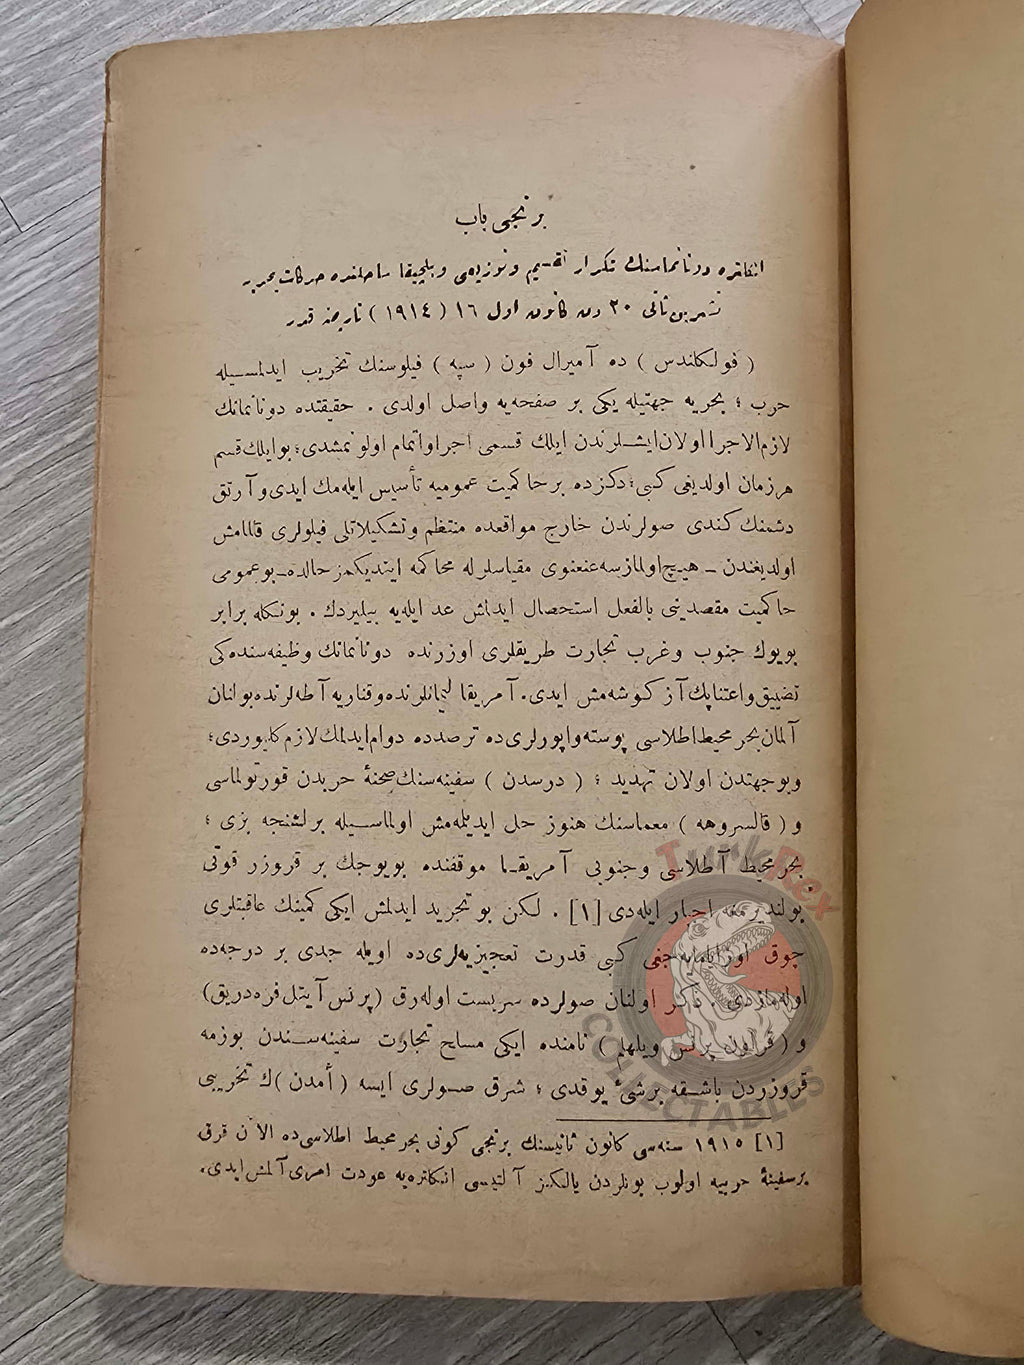 برنجی باب
انكلتره دونانماسنك تكرار تقسيم وتوزيعی وبلچيقا ساحلنده حركات بحريه
تشرين ثانی ٢٠ دن كانون اول ١٦ (١٩١٤) تاريخنه قدر
(فولكلندس) ده آميرال فون (سپه) فيلوسنك تخريب ايدلمسيله
حرب؛ بحريه جهتيله يكی بر صفحه‌يه واصل اولدی. حقيقتده دونانمانك
لازم‌الاجرا اولان ايشلرندن ايلك قسمی اجرا و اتمام اولونمشدی؛ بو ايلك قسم
هرزمان اولديغی كبی؛ دكزده برحاكميت عموميه تأسيس ايله‌مك ايدی و آرتق
دشمنك كندی صولرندن خارج مواقعده منتظم وتشكيلاتلی فيلولری قالمامش
اولديغندن ـ هيچ اولمازسه عنعنوی مقياسلرله محاكمه ايتديكمز حالده ـ بوعمومی
حاكميت مقصدينی بالفعل استحصال ايدلمش عد ايله‌يه بيليردك. بونكله برابر
بويوك جنوب وغرب تجارت طريقلری اوزرنده دونانمانك وظيفه‌سنده‌كی
تضييق واعتنا پك آز كوشه‌مش ايدی. آمريقا ليمانلرنده وقناريه آطه‌لرنده بولنان
آلمان بحر محيط اطلاسی پوسته واپورلری‌ده ترصدده دوام ايدلمك لازم كليوردی؛
وبوجهتدن اولان تهديد؛ (درسدن) سفينه‌سنك صحنۀ حربدن قورتولماسی
و (قالسروهه) معماسنك هنوز حل ايديله‌مش اولماسيله برلشنجه بزی؛
بحر محيط آطلاسی وجنوبی آمريقا موقفنده بويوجك بر قروزر قوتی
بولنديرمغه اجبار ايله‌دی [١]. لكن بو تجريد ايدلمش ايكی كمينك عاقبتلری
چوق اوزامايه‌جغی كبی قدرت تعجيزيه‌لری‌ده اويله جدی بر درجه‌ده
اوله‌مازدی. ذكر اولنان صولرده سربست اوله‌رق (پرنس آيتل فره‌دريق)
و (قرون پرنس ويلهلم) نامنده ايكی مسلح تجارت سفينه‌سندن بوزمه
قروزردن باشقه برشیٔ يوقدی؛ شرق صولری ايسه (أمدن)ك تخريبی
[١] ١٩١٥ سنه‌سی كانون ثانيسنك برنجی كونی بحر محيط اطلاسی‌ده الآن قرق
برسفينۀ حربيه اولوب بونلردن يالكيز آلتيسی انكلتره‌يه عودت امری آلمش ايدی.
TurkRex
COLLECTABLES